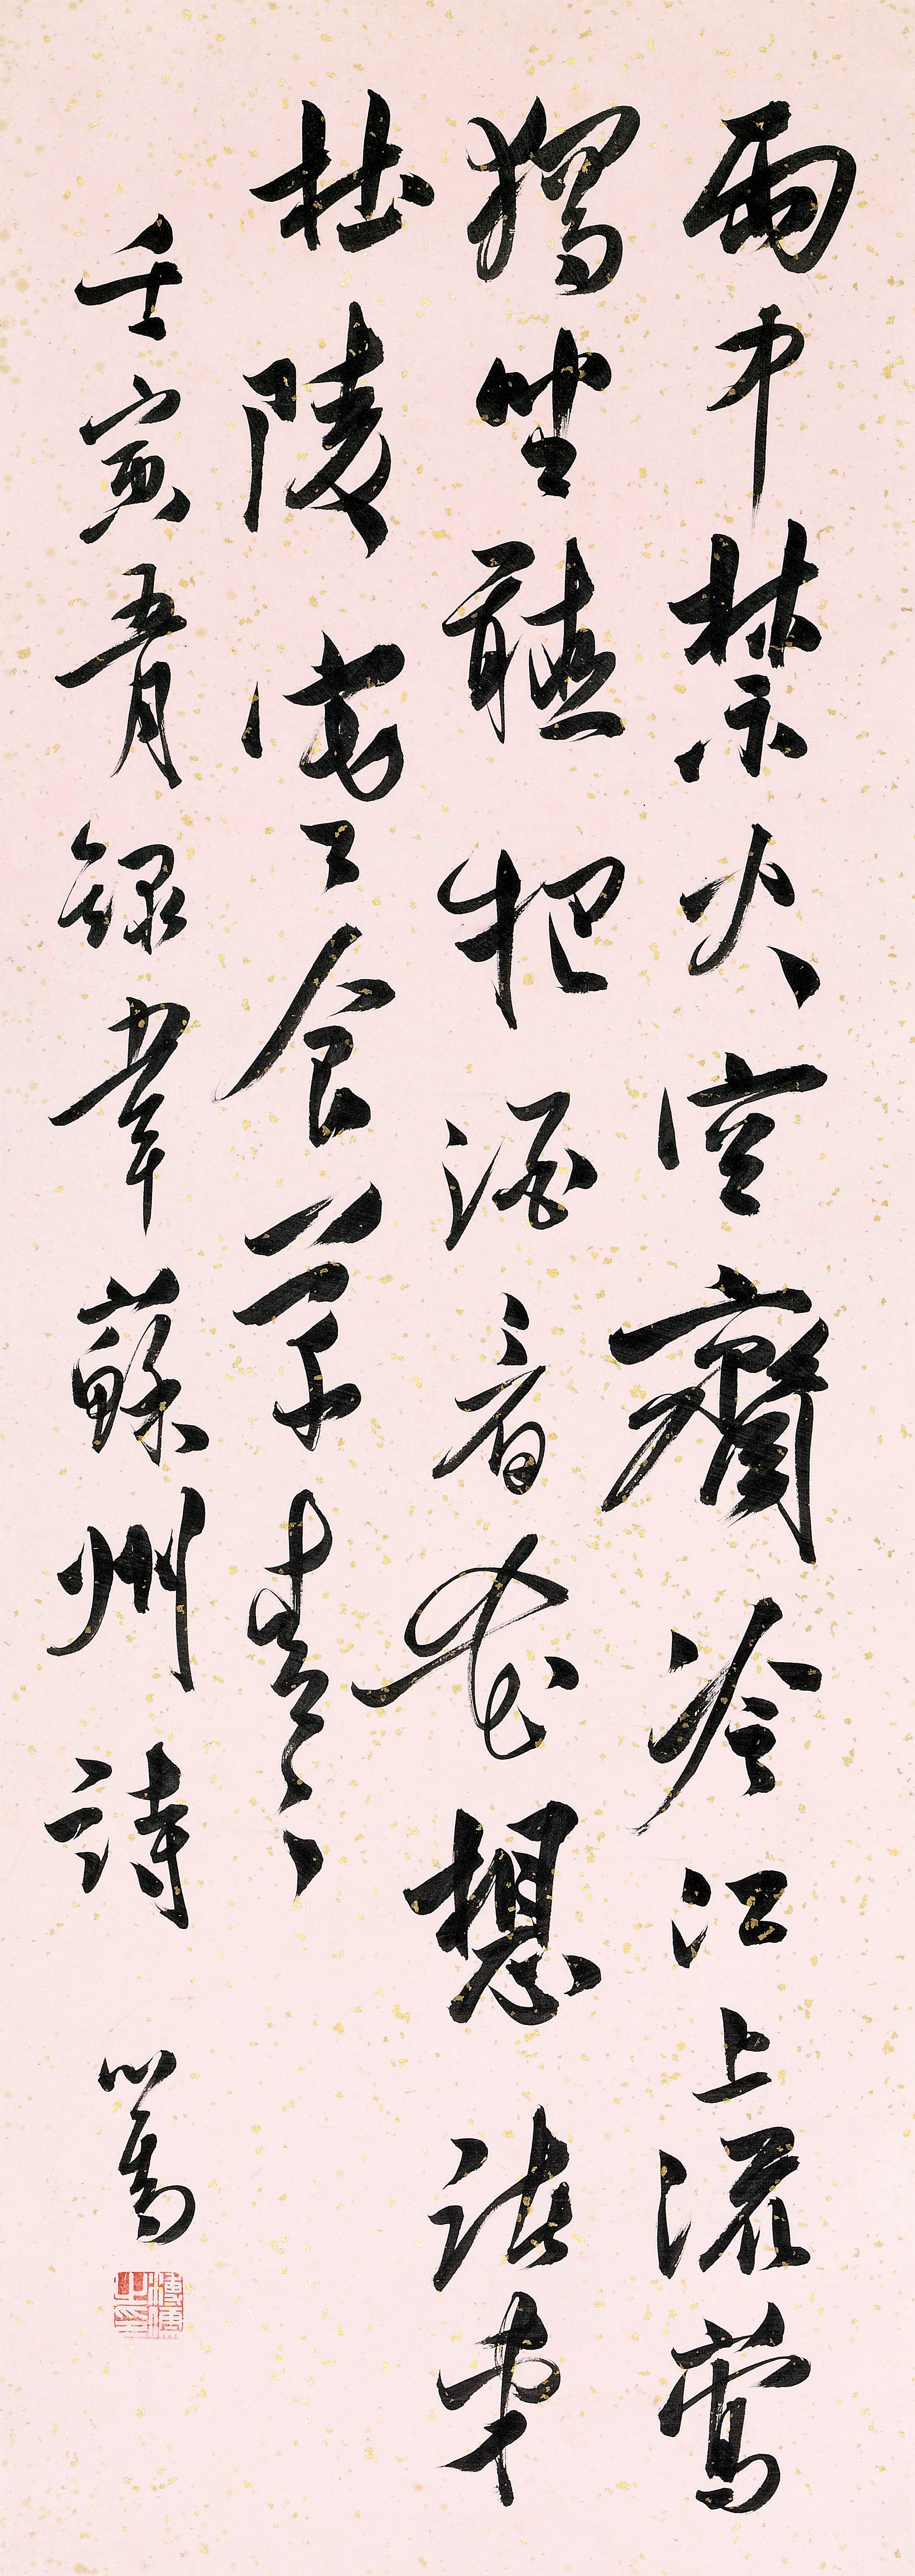 雨中禁火空齋冷江上流鶯
獨坐聽把酒看花想諸弟
杜陵寒食草青々
壬寅五月録韋蘇州詩 心畬
溥儒之印